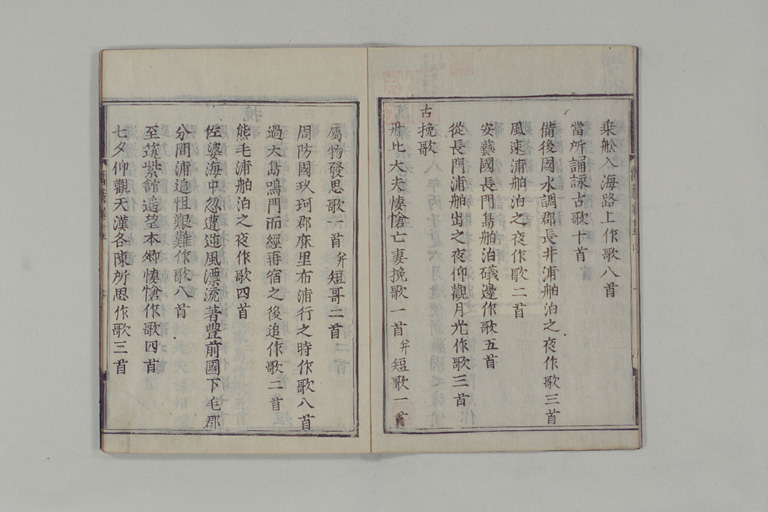 乗舩入海路上作歌八首
當所誦詠古歌十首
備後國水調郡長井浦舶泊之夜作歌三首
風速浦舶泊之夜作歌二首
安藝國長門島舶泊礒邊作歌五首
從長門浦舶出之夜仰觀月光作歌三首
古挽歌
丹比大夫悽愴亡妻挽歌一首并短歌一首
屬物發思歌一首并短哥二首
周防國玖珂郡麻里布浦行之時作歌八首
過大島鳴門而經再宿之後追作歌二首
熊毛浦舶泊之夜作歌四首
佐婆海中忽遭逆風漂流著豊前國下毛郡
分間浦追怛艱難作歌八首
至筑紫舘遥望本郷悽愴作歌四首
七夕仰觀天漢各陳所思作歌三首